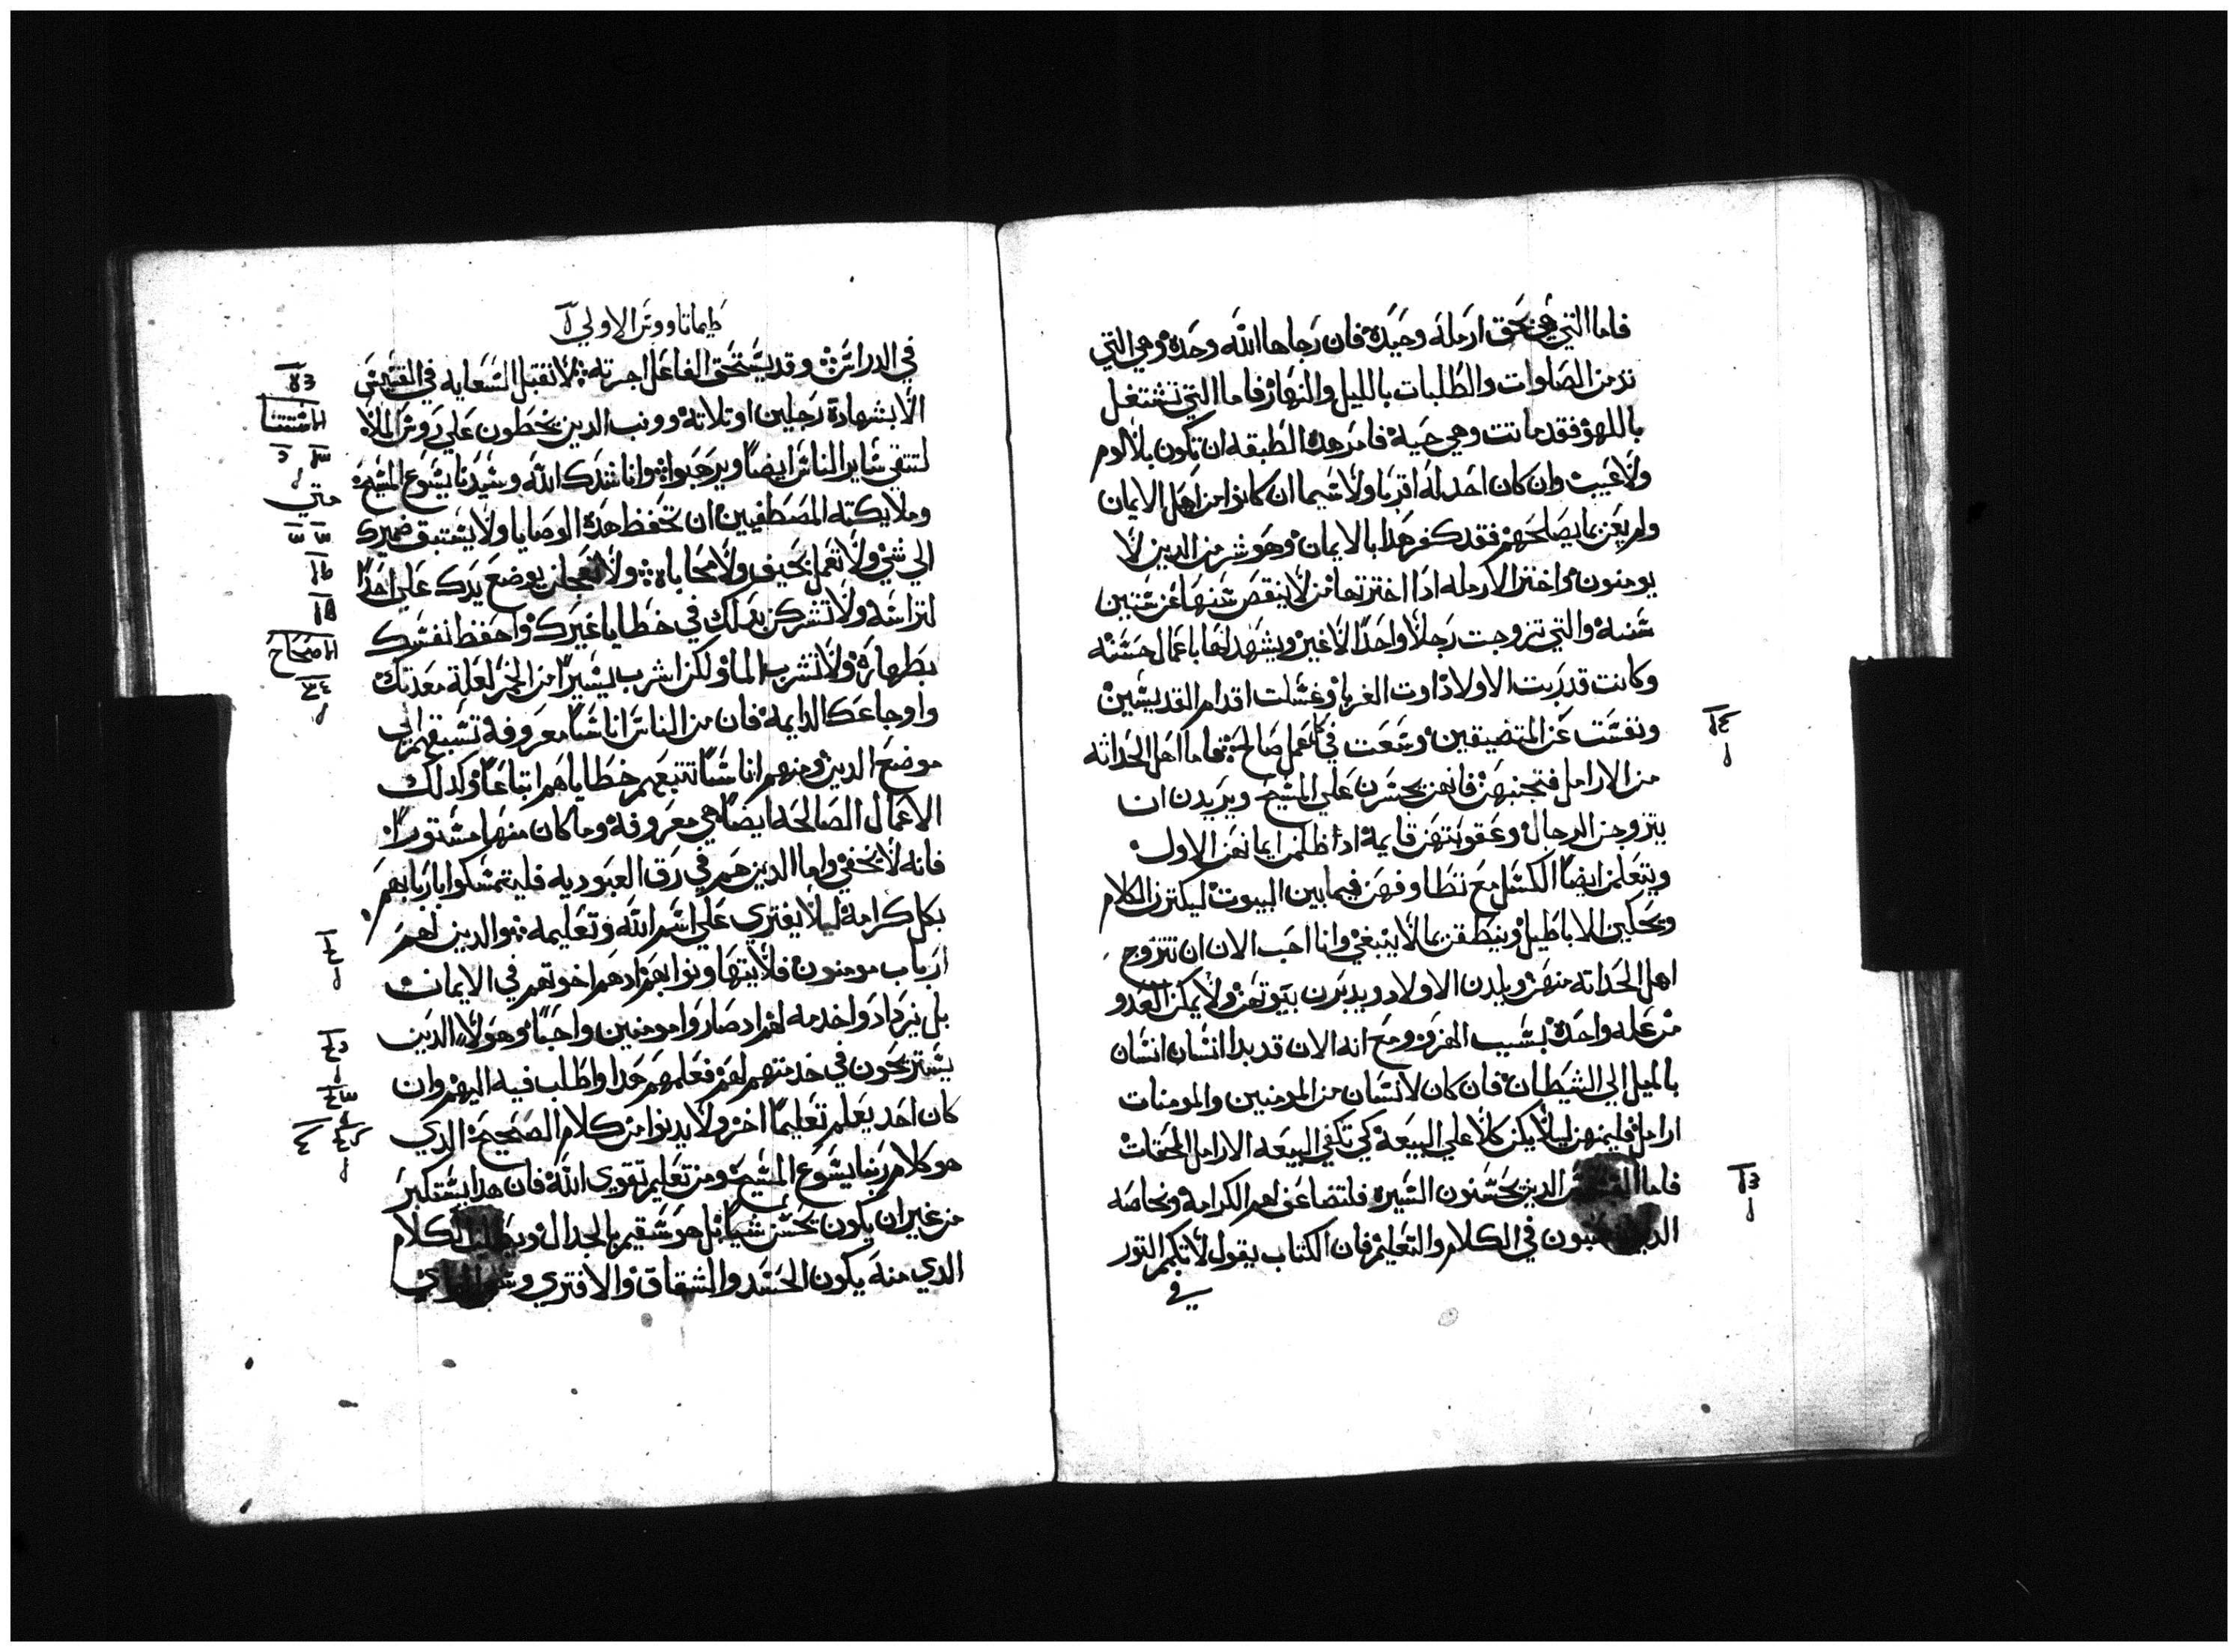 فاما التي هي بحق ارمله وحيدة فان رجاها الله وحده وهي التي
تدمن الصلوات والطلبات بالليل والنهار فاما التي تشتغل
باللهو فقد ماتت وهي حية فامر هده الطبقه ان تكون بلا لوم
ولا عيب وان كان احد له اقربا ولا سيما ان كانوا من اهل الايمان
ولم يعن بما يصلحهم فقد كفر هدا بالايمان وهو شر من الدين لا
يومنون واختر الارمله ادا اخترتها من لا ينقص سنها عن ستين
سنه والتي تزوجت رجلا واحدا لا غير ويشهد لها باعمال حسنه
وكانت قد ربت الاولاد واوت الغربا وغسلت اقدام القديسين
ونفست عن المتضيقين وسعت في كل عمل صالح فاما اهل الحداثه
من الارامل فتجنبهن فانهن يجسرن علي المسيح ويريدن ان
يتزوجن الرجال وعقوبتهن قايمه اد اظلمن ايمانهن الاول
ويتعلمن ايضا الكسل مع تطاوفهن فيما بين البيوت ليكترن الكلام
ويحكين الاباطيل وينطقن بما لا ينبغي وانا احب الان ان تتزوج
اهل الحداثه منهن ويلدن الاولاد ويدبرن بيوتهن ولا يمكن العدو
من عله واحدة بسبب الهزو ومع انه الان قد بدا انسان انسان
بالميل الي الشيطان فان كان لانسان من المومنين والمومنات
ارامل فليمنهن ليلا يكن كلا علي البيعه كي تكفي البيعه الارامل المحقات
فاما الدين يحسنون السيره فلتضاعف لهم الكرامه وبخاصه
في الكلام والتعليم فان الكتاب يقول لا تكم التور
في
١٤
ل
١٣
ل
طيماتاووس الاولي
في الدراس وقد يستحق الفاعل اجرته لا تقبل السعايه في القسيس
الا بشهادة رجلين او ثلاثه وونب الدين يخطون علي روس الملا
لتتقي ساير الناس ايضا ويرهبوا وانا شدك الله وسيدنا يسوع المسيح
وملايكته المصطفين ان تحفظ هده الوصايا ولا يستبق ضميرك
الي شي ولا تعمل بحيف ولا محاباه ولا تعجلن بوضع يدك علي احدا
لتراسه ولا تشركن بدلك في خطايا غيرك واحفظ نفسك
بطهاره ولا تشرب الما ولكن اشرب يسيرا من الخمر لعلة معدتك
واوجاعك الدايمه فان من الناس اناسا معروفه تسبقهم الي
موضع الدين ومنهم اناسا تتبعهم خطاياهم اتباعا وكدلك
الاعمال الصالحه ايضا هي معروفه وما كان منها مستورا
فانه لا يخفي واما الدين هم في رق العبوديه فليتمسكوا باربابهم
بكل كرامه ليلا يفتري علي اسم الله وتعليمه والدين لهم
ارباب مومنون فلا يتهاونوا بهم اد هم اخوتهم في الايمان
بل يزدادوا خدمه لهم اد صاروا مومنين واحبا وهولا الدين
يستريحون في خدمتهم لهم فعلمهم هدا واطلب فيه اليهم وان
كان احد يعلم تعليما اخر ولا يدنوا من كلام الصحيح الدي
هو كلام ربنا يسوع المسيح ومن تعليم تقوي الله فان هدا يستكبر
من غير ان يكون يحسن شيا بل هو سقيم بالجدال كلام
الدي منه يكون الحسد والشقاق والافتري
متي
الاصحاح